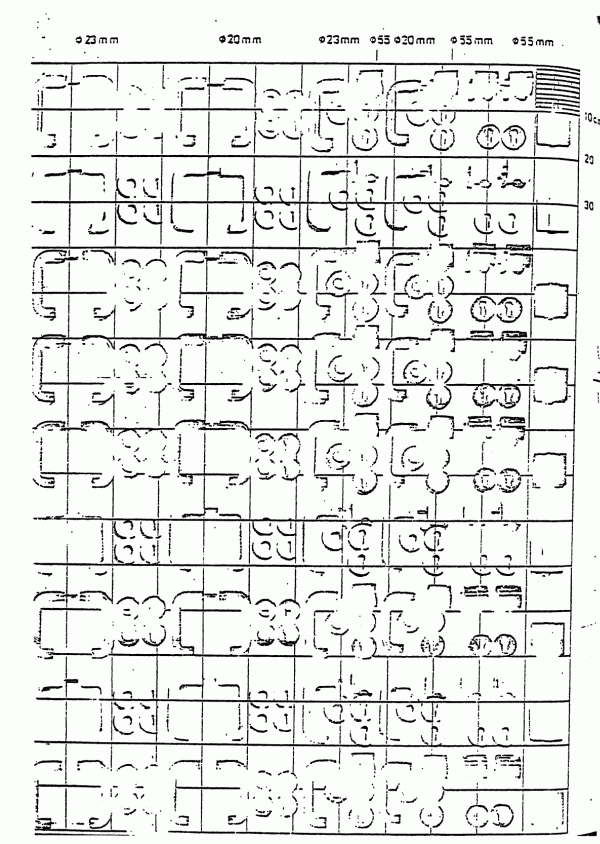 φ23mm φ20mm φ23mm φ55 φ20mm φ55mm φ55mm
10c
20
30